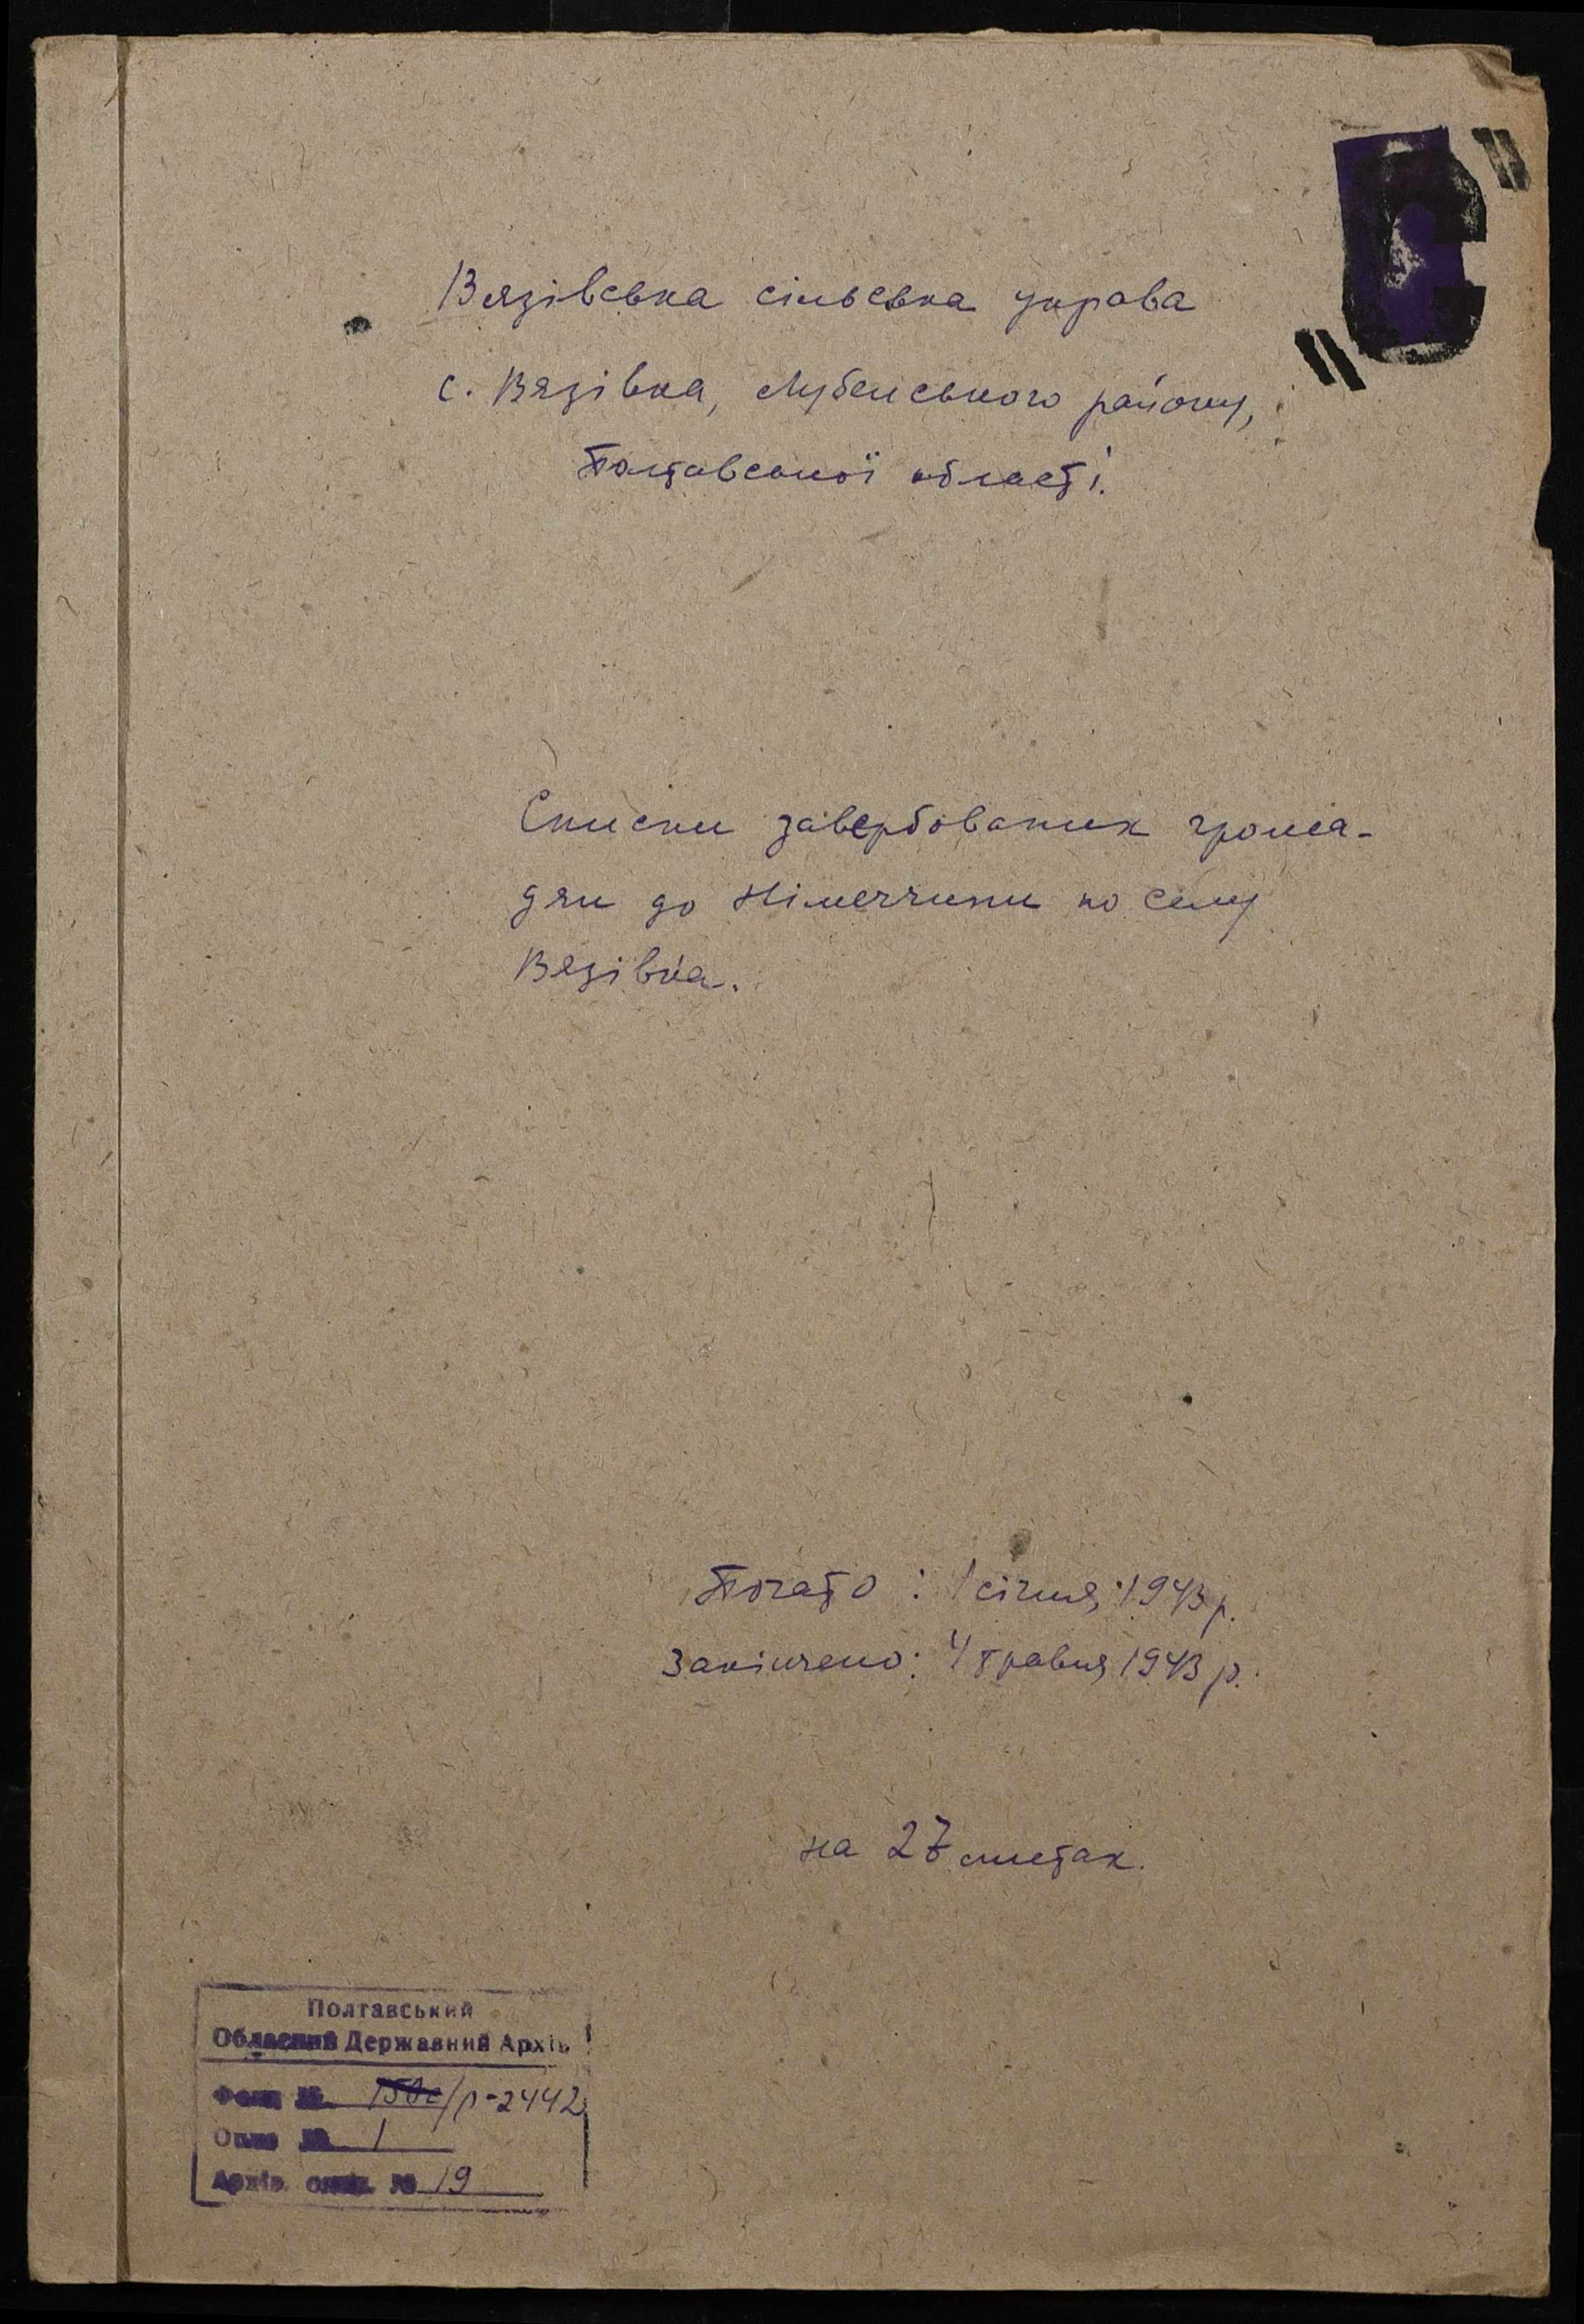 "С"
Вязівська сільська управа
с. Вязівка, Лубенського району,
Полтавської області.
Списки завербованих грома-
дян до Німеччини по селу
Вязівка.
Почато: 1 січня 1943 р.
Закінчено: 4 травня 1943 р.
на 27 листах.
Полтавський
Обласний Державний Архів
Фонд № 158с/р-2442
Опис № 1
Архів. один. № 19